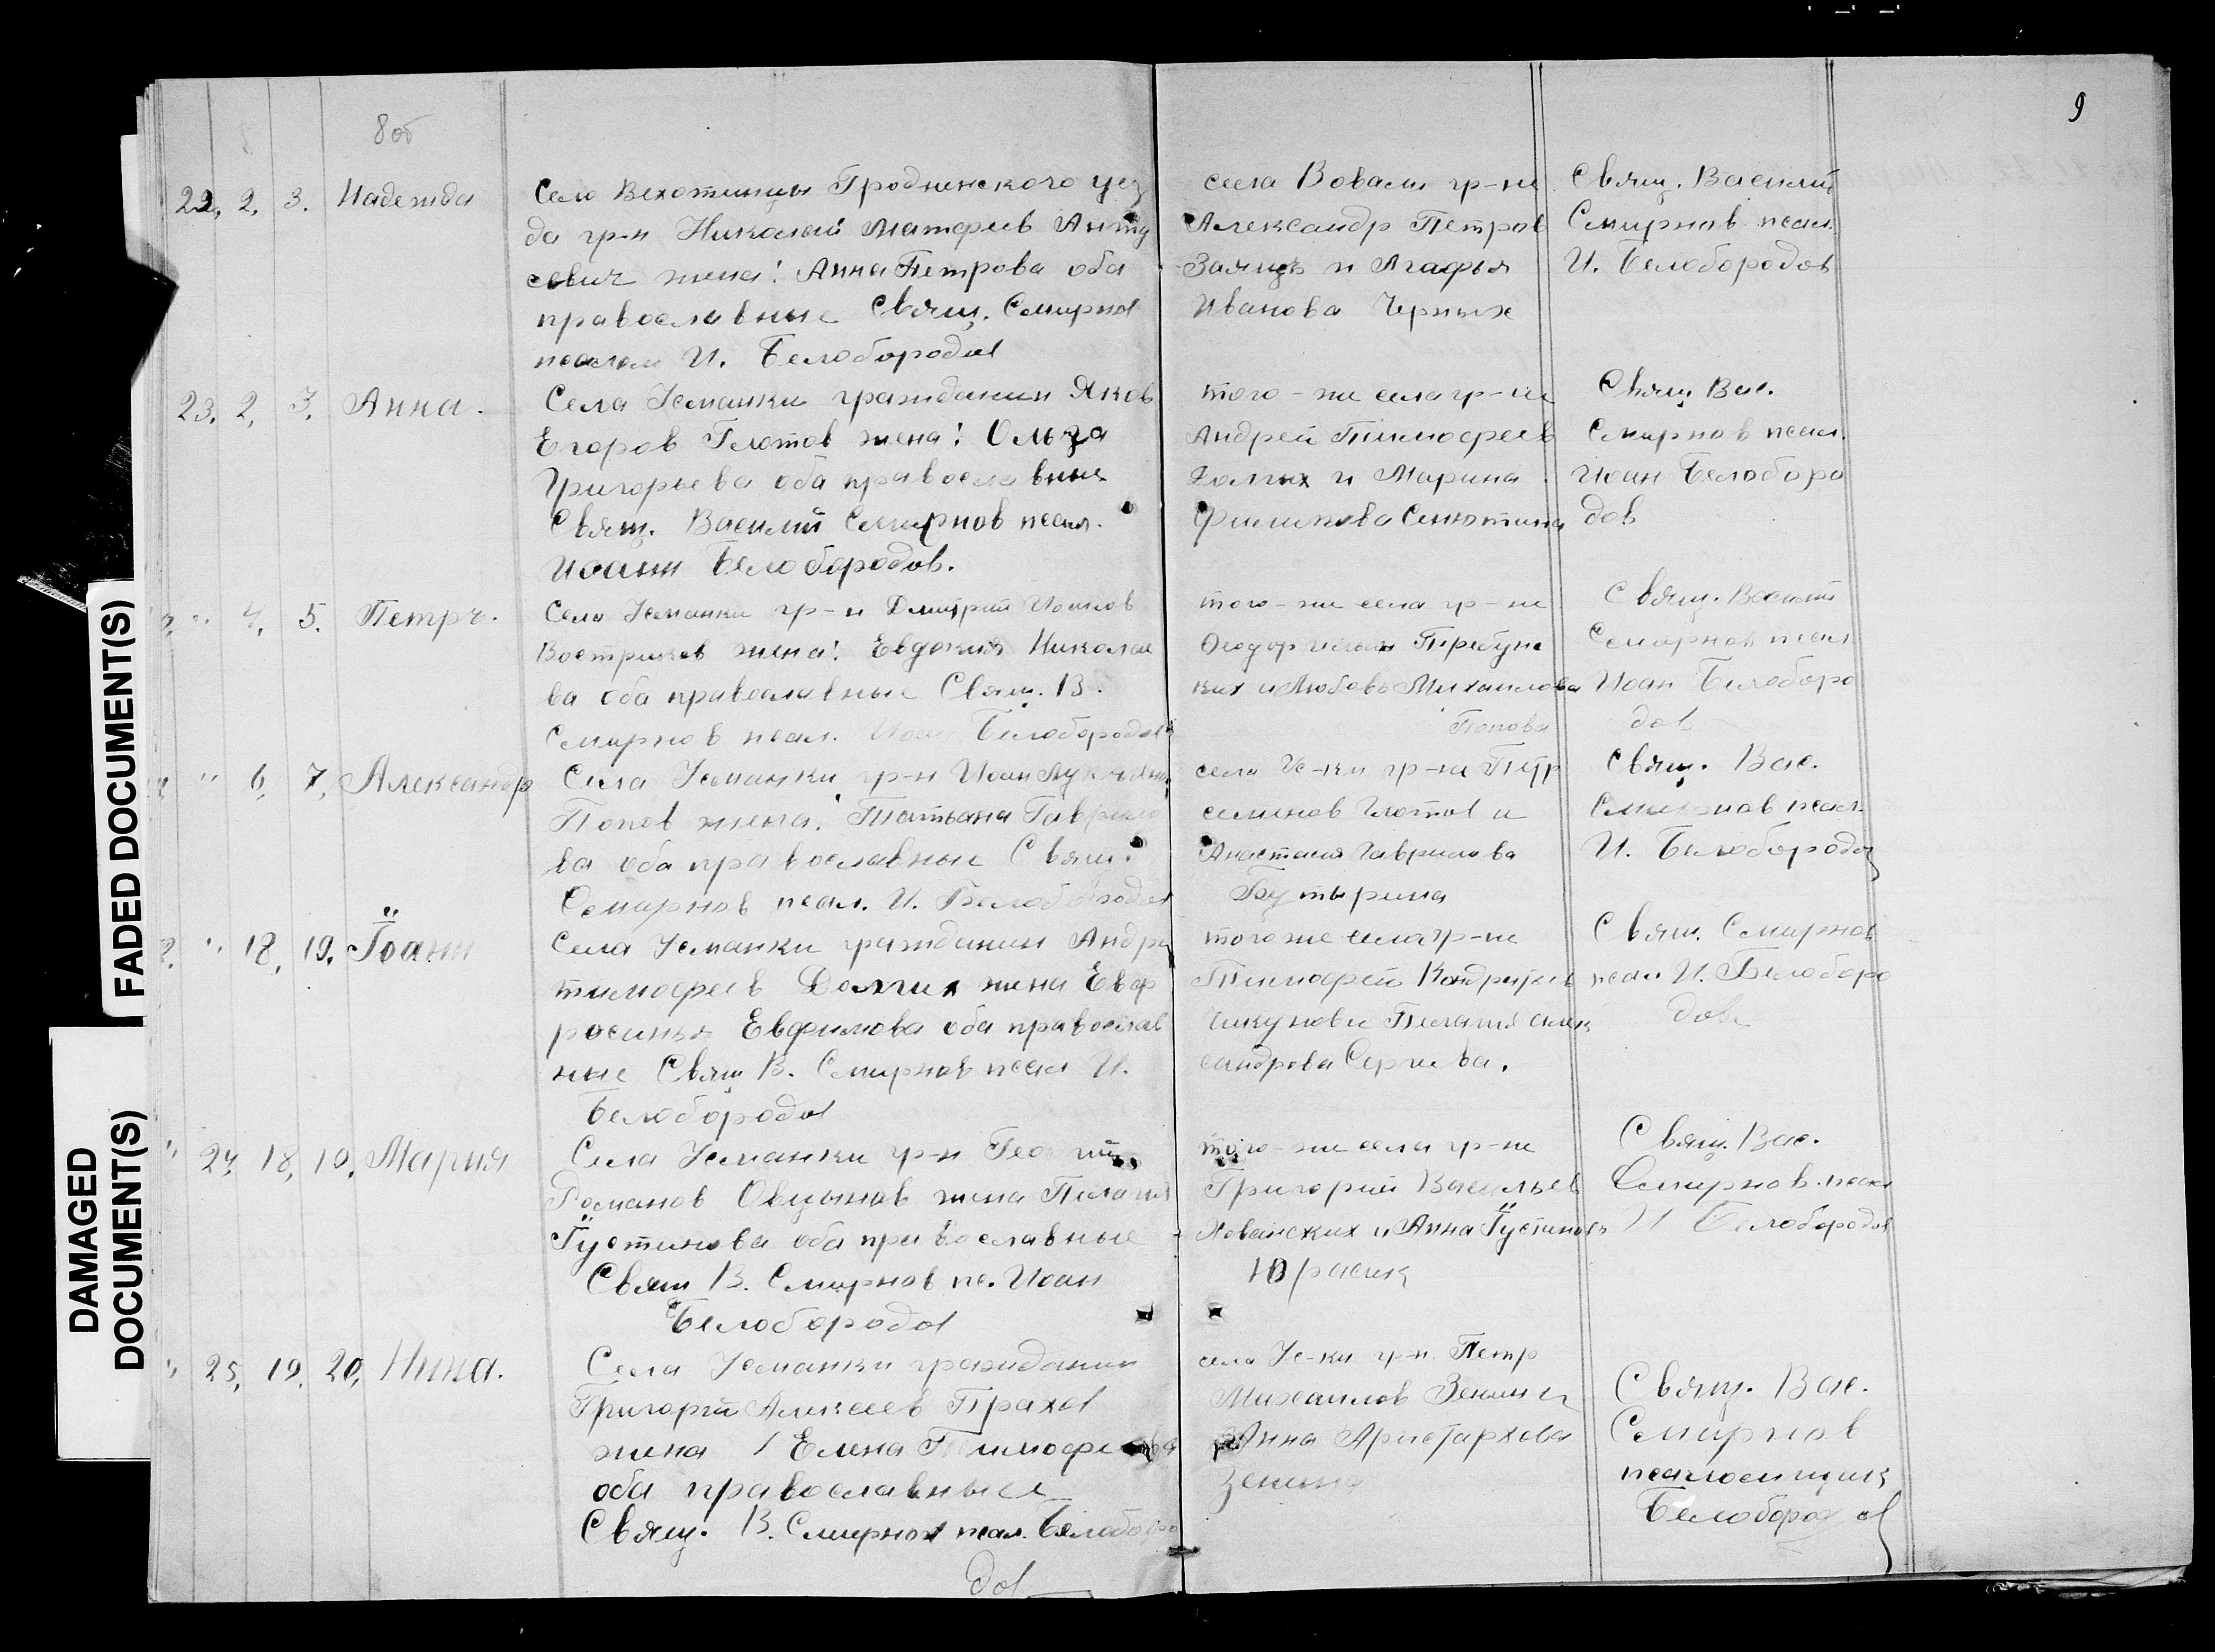 8об
9
22, 2, 3. Надежда
Село Вехотницы Гродненского уез
да гр-н Николай Матфеев Анту
севич жена: Анна Петрова оба
православные Свящ. Смирнов
псалом И. Белобородов
села Вовали гр-не
Александр Петров
Заяцъ и Агафья
Иванова Черных
Свящ. Василий
Смирнов псал.
И. Белобородов
23, 2, 3, Анна.
Села Усманки гражданин Яков
Егоров Глотов жена: Ольга
Григорьева оба православные
Свящ. Василий Смирнов псал.
Иоанн Белобородов.
того-же села гр-не
Андрей Тимофеев
Долгих и Марина
Филипова Синютина
Свящ. Вас.
Смирнов псал.
Иоан Белоборо
дов
" 4, 5. Петръ.
Села Усманки гр-н Дмитрий Иоанов
Востриков жена: Евдокия Николае
ва оба православные Свящ. В.
Смирнов псал. Иоа Белобородов
того-же села гр-не
Феодор Требунс
ких и Любовь Михаилова
Попова
Свящ. Василий
Смирнов псал
Иоан Белоборо
дов
" 6, 7, Александр
Села Усманки гр-н Иоан Лукъянов
Попов жена: Татьана Гаврило
ва оба православные Свящ.
Смирнов псал. И. Белобородов
села Ус-ки гр-не Петр
семенов Глотов и
Анастасия Гаврилова
Бутырина
Свящ. Вас.
Смирнов псал.
И. Белобородов
" 18, 19. Їоанн
Села Усманки гражданин Андрей
тимофеев Долгих жена Евф
росинья Евфимова оба православ
ные Свящ В. Смирнов псал И.
Белобородов
того же села гр-не
Тимофей Кондратьев
Чикунов и Пелагия алек
сандрова Сергиева.
Свящ. Смирнов
псал И. Белоборо
довъ
" 24, 18, 19, Мария
Села Усманки гр-н Георгий
Романов Овцынов жена Пелагия
Їустинова оба православные
Свящ В. Смирнов пс. Иоан
Белобородов
того-же села гр-не
Григорий Васильев
Хованских и Анна Їустинова
Свящ. Вас.
Смирнов. псал
И Белобородов
" 25, 19, 20, Нина.
Села Усманки гражданин
Григорий Алексеев Трахов
жена / Елена Тимофеева
оба православные
Свящ. В. Смирнов псал. Белоборо
дов
села Ус-ки гр-н. Петр
Михаилов Зенин и
Анна Аристархова
Зенина
Свящ. Вас.
Смирнов
псаломщик
Белобородов
FADED DOCUMENT(S)
DAMAGED
DOCUMENT(S)